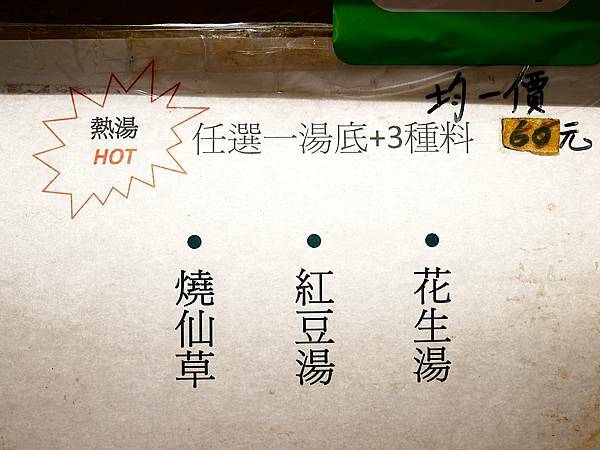 均一價
熱湯
HOT
任選一湯底+3種料
60元
花生湯
紅豆湯
燒仙草